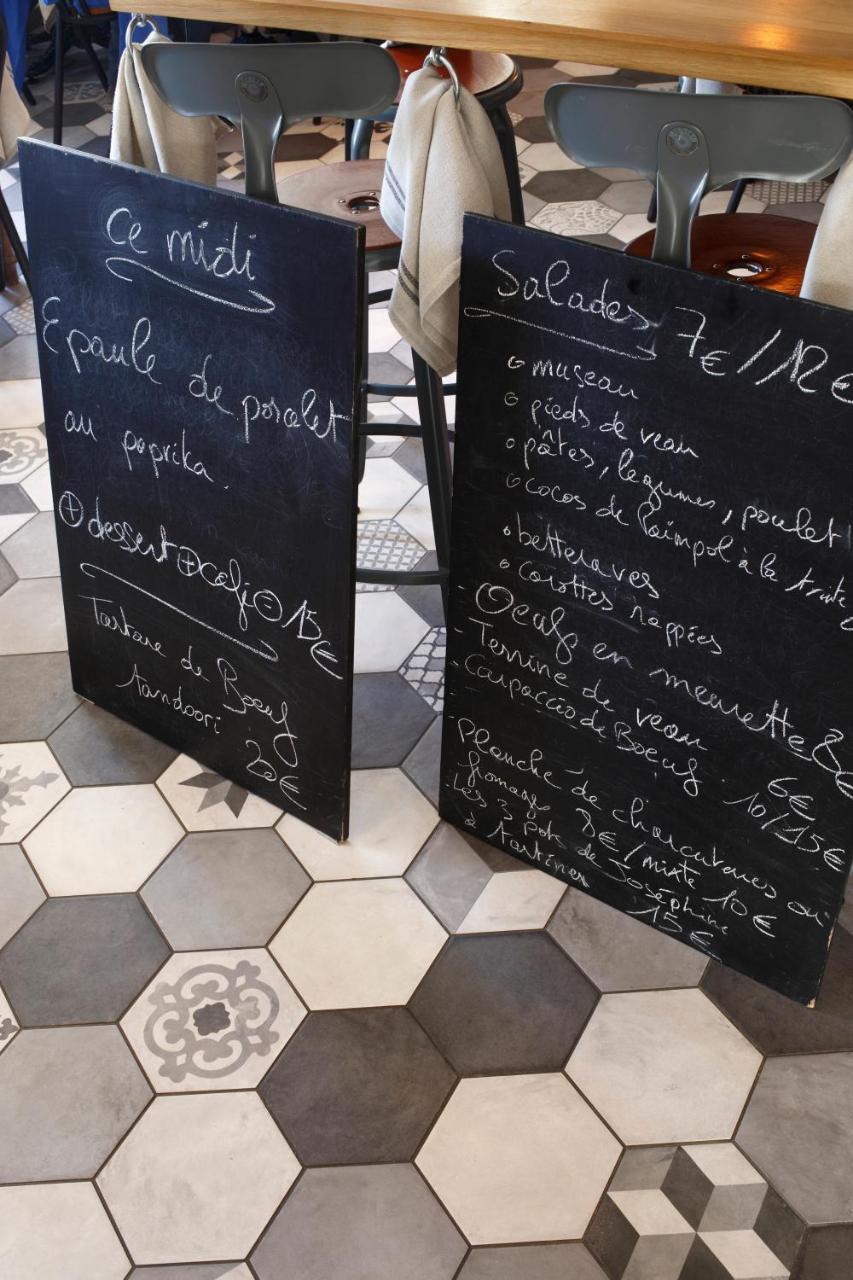 Ce midi
Epaule de porcelet
au paprika.
⊕ dessert ⊕ café ⊖ 15€
Tartare de Boeuf
tandoori
20€
Salades 7€/12€
museau
pieds de veau
pâtes, legumes, poulet
cocos de Paimpol à la truite
betteraves
carottes rappées
Oeufs en meurette 8€
Terrine de veau 6€
Carpaccio de Boeuf 10/15€
planche de charcuteries ou
fromage 8€/mixte 10€
Les 3 pots de Joséphine
à tartiner 15€